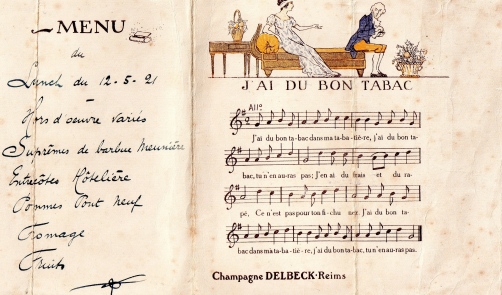 MENU
du
Lunch du 12-5-21
Hors d'oeuvre variés
Suprêmes de barbue Meunière
Entrecôtes Hôtelière
Pommes Pont neuf
Fromage
Fruits
J'AI DU BON TABAC
All°
J'ai du bon ta-bac dans ma ta-ba-tiè-re, j'ai du bon ta-
bac, tu n'en au-ras pas; J'en ai du frais et du ra-
pé, Ce n'est pas pour ton fi-chu nez J'ai du bon ta-
bac dans ma ta-ba-tiè-re, j'ai du bon ta-bac, tu n'en au-ras pas.
Champagne DELBECK-Reims